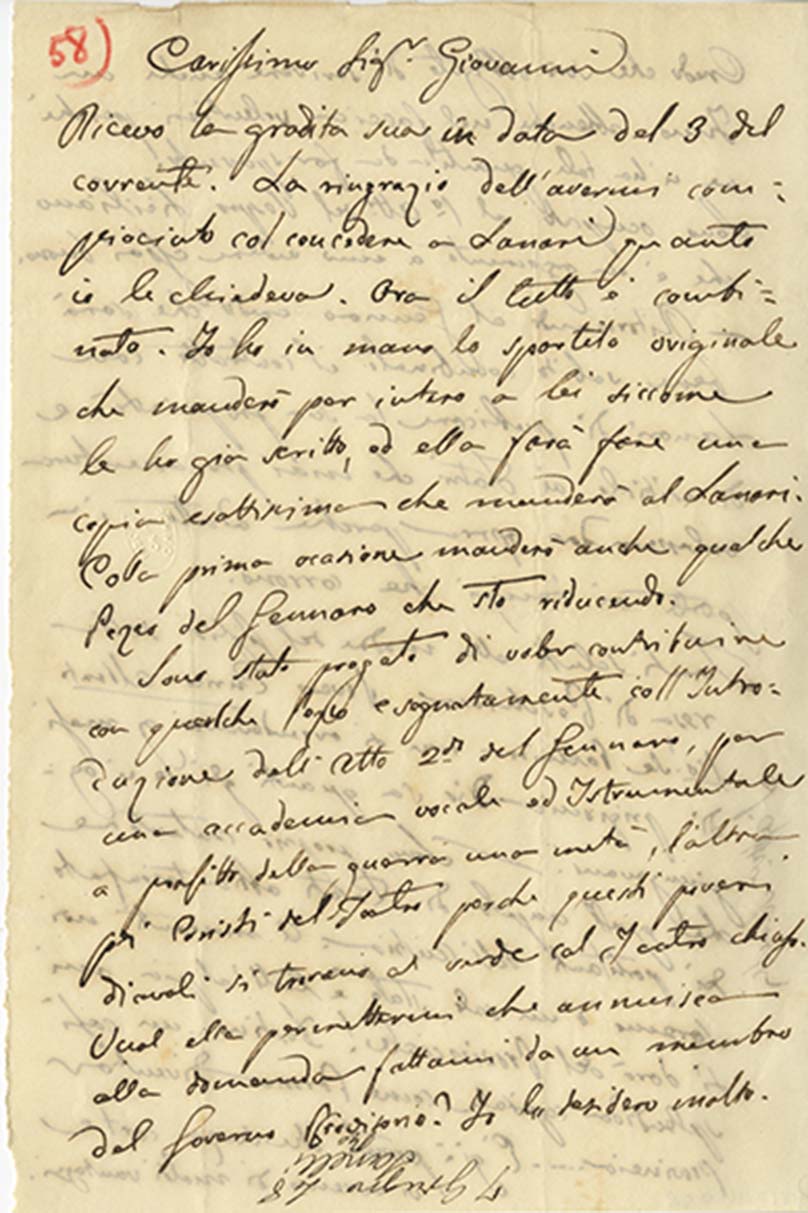 58)
Carissimo Sigr. Giovanni
Ricevo la gradita sua in data del 3 del
corrente. La ringrazio dell'avermi com=
piaciuto col concedere a Lanari quanto
io le chiedeva. Ora il tutto è combi=
nato. Io ho in mano lo spartito originale
che manderò per intero a lei siccome
le ho già scritto, ed ella farà fare una
copia esattissima che manderà al Lanari.
Colla prima ocasione manderò anche qualche
Pezzo del Gennaro che sto riducendo.
Sono stato pregato di voler contribuire
con qualche Pezzo e segnatamente coll'Intro=
duzione dell'Atto 2do del Gennaro, per
una accademia vocale ed Istrumentale
a profitto della guerra una metà, l'altra
pei Coristi del Teatro perchè questi poveri
diavoli si trovano al verde col Teatro chiuso.
Vuol ella permettermi che annuisca
alla domanda fattami da un membro
del Governo Provisorio? Io lo desidero molto.